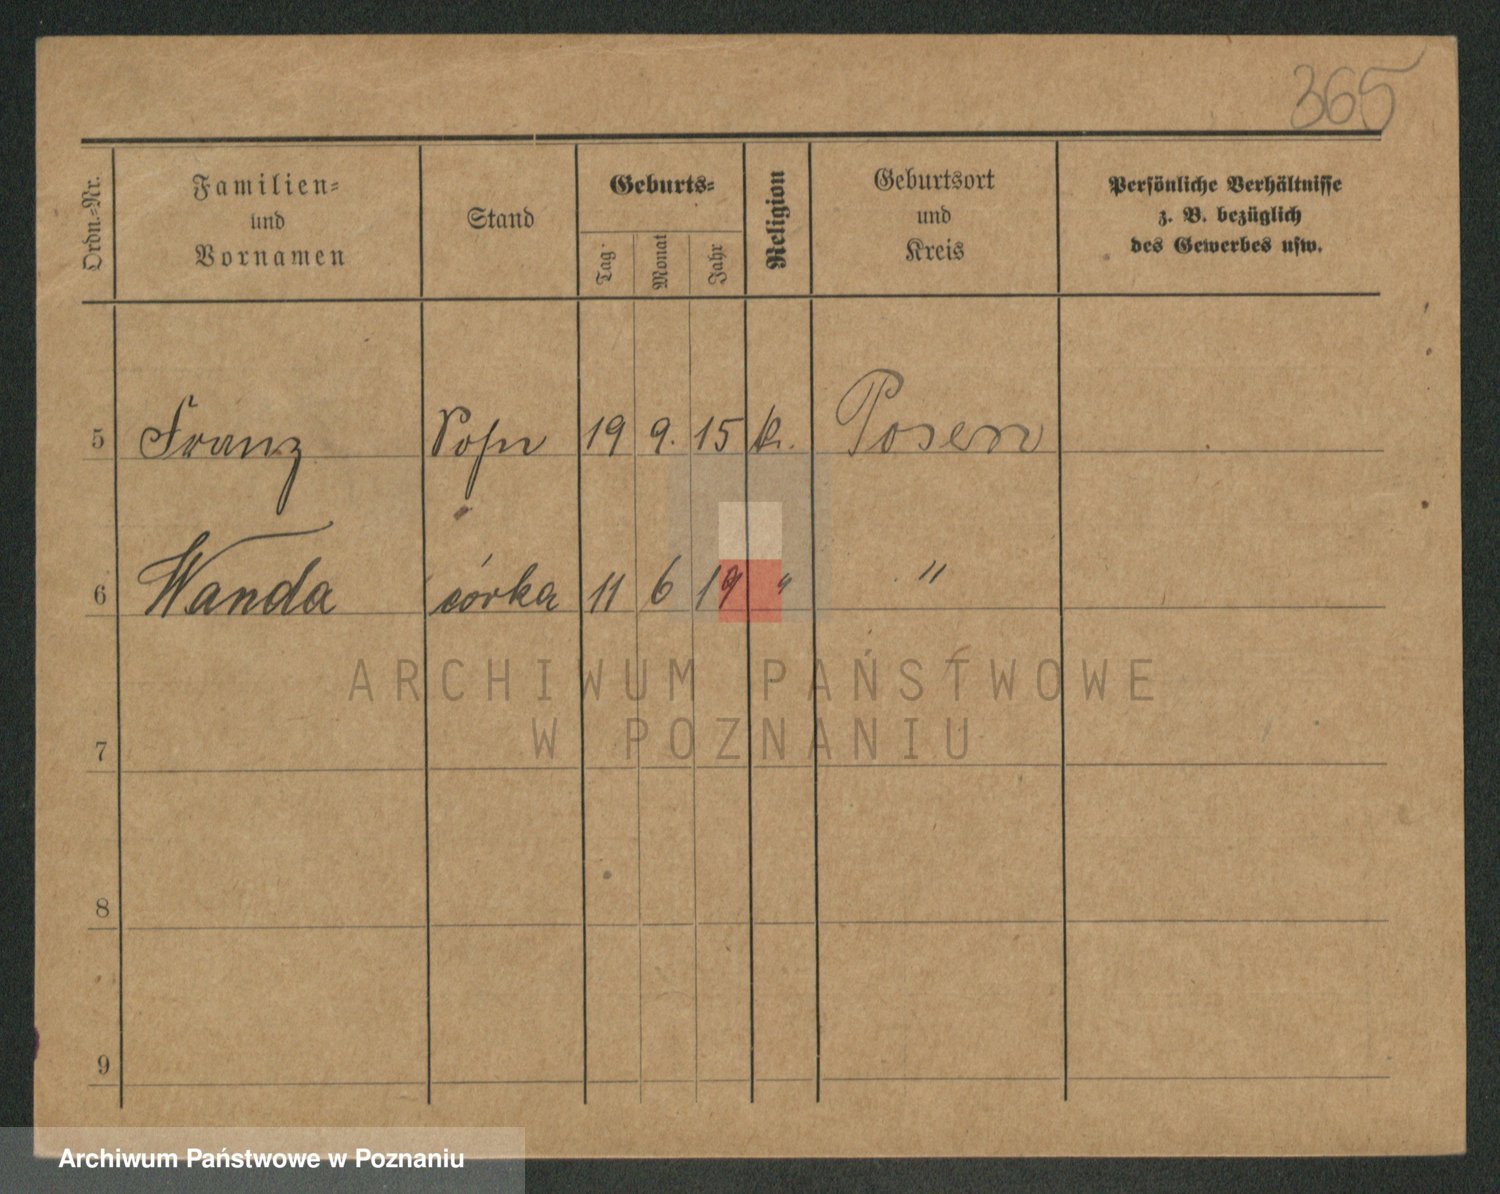 365
Ordn.-Nr.
Familien-
und
Vornamen
Stand
Geburts-
Tag
Monat
Jahr
Religion
Geburtsort
und
Kreis
Persönliche Verhältnisse
z. B. bezüglich
des Gewerbes usw.
5 Franz Sohn 19 9. 15 k. Posen
6 Wanda córka 11 6 19 " "
ARCHIWUM PAŃSTWOWE
W POZNANIU
7
8
9
Archiwum Państwowe w Poznaniu